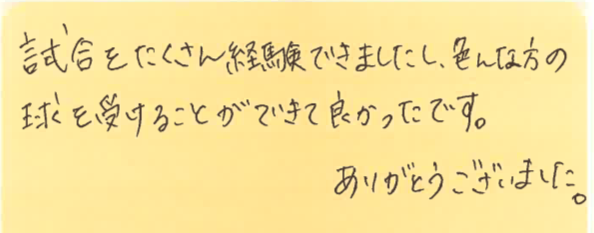 試合をたくさん経験できましたし、色んな方の
球を受けることができて良かったです。
ありがとうございました。